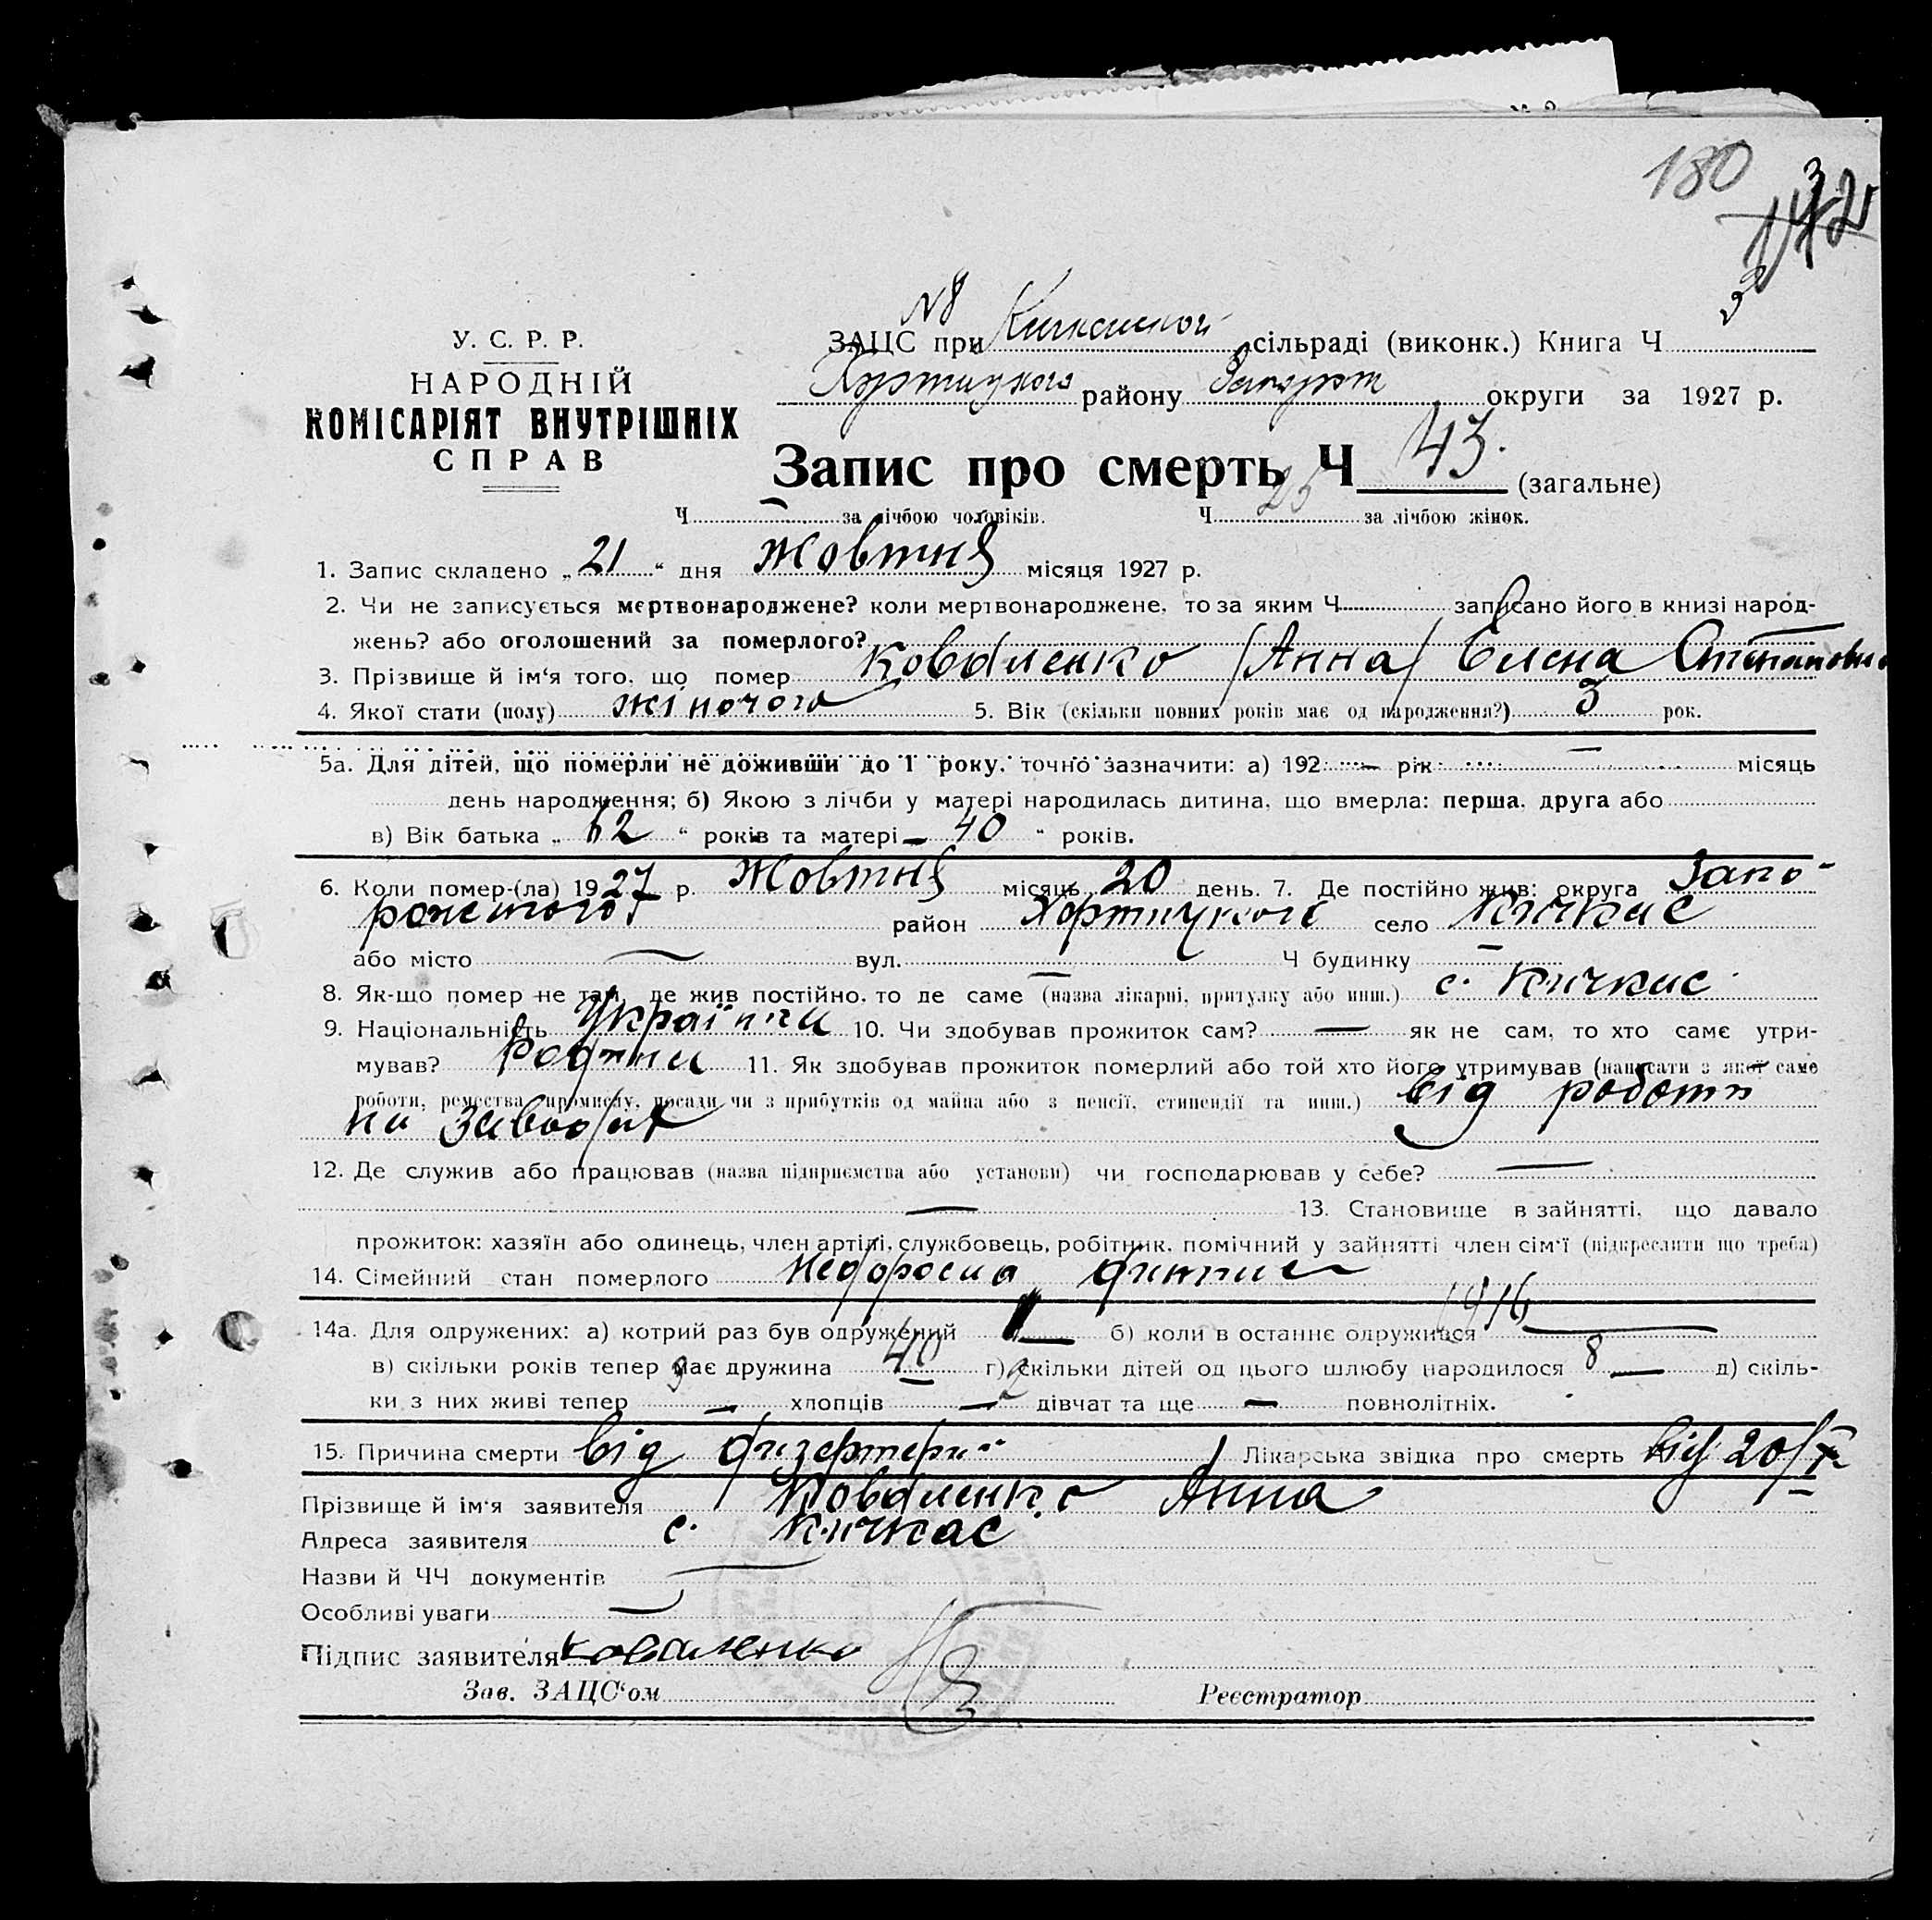 180
У. С. Р. Р.
НАРОДНІЙ
КОМІСАРІЯТ ВНУТРІШНІХ
СПРАВ
ЗАЦС при Кичкаской сільраді (виконк.) Книга Ч
Хортицкого району Запорож округи за 1927 р.
Запис про смерть Ч 43. (загальне)
Ч — за лічбою чоловіків. Ч 25 за лічбою жінок.
1. Запис складено „ 21 “ дня Жовтня місяця 1927 р.
2. Чи не записується мертвонароджене? коли мертвонароджене, то за яким Ч. записано його в книзі народ-
жень? або оголошений за померлого?
3. Прізвище й ім'я того, що помер Коваленко (Анна) Елена Степановна
4. Якої стати (полу) жіночого 5. Вік (скільки повних років має од народження?) 3 рок.
5а. Для дітей, що померли не доживши до 1 року, точно зазначити: а) 192 — рік — місяць
день народження; б) Якою з лічби у матері народилась дитина, що вмерла: перша, друга або
в) Вік батька „ 62 “ років та матері — 40 “ років.
6. Коли помер-(ла) 1927 р. Жовтня місяць 20 день. 7. Де постійно жив: округа Запо-
район Хортицкого село Кичкас
або місто — вул. — Ч будинку —
8. Як-що помер не там, де жив постійно, то де саме (назва лікарні, притулку або инш.) с. Кичкас.
9. Національність Українка 10. Чи здобував прожиток сам? — як не сам, то хто саме утри-
мував? 11. Як здобував прожиток померлий або той хто його утримував (написати з якої саме
роботи, ремества, промислу, посади чи з прибутків од майна або з пенсії, стипендії та инш.) від роботи
на заводах
12. Де служив або працював (назва підприємства або установи) чи господарював у себе? —
— 13. Становище в зайнятті, що давало
прожиток: хазяїн або одинець, член артілі, службовець, робітник, помічний у зайнятті член сім'ї (підкреслити що треба)
14. Сімейний стан померлого недоросла дитина
14а. Для одружених: а) котрий раз був одружений 1 — б) коли в останнє одружився 1916 —
в) скільки років тепер має дружина 40 — г) скільки дітей од цього шлюбу народилося 8 — д) скіль-
ки з них живі тепер — хлопців — 2 дівчат та ще — повнолітніх.
15. Причина смерти від дизертерії Лікарська звідка про смерть від 20/X
Прізвище й ім'я заявителя Коваленко Анна
Адреса заявителя с. Кичкас.
Назви й ЧЧ документів —
Особливі уваги —
Підпис заявителя Коваленко
Зав. ЗАЦС'ом Реєстратор